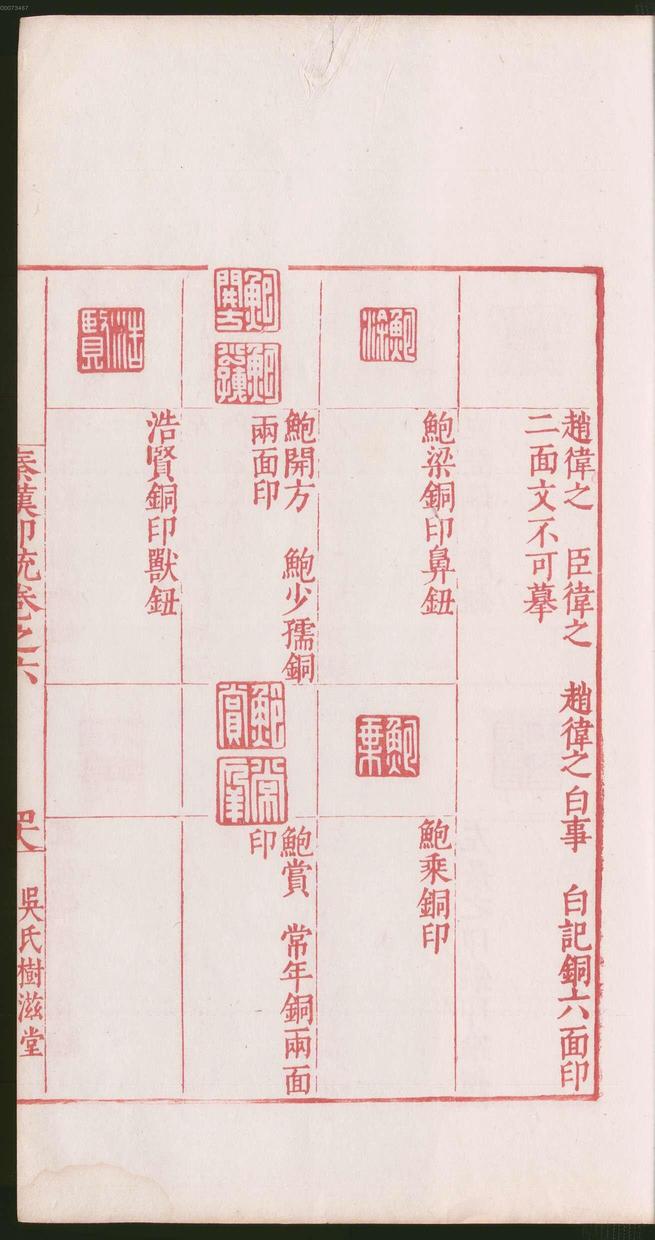 00073467
趙偉之　臣偉之　趙偉之白事　白記銅六面印
二面文不可摹
鮑梁
鮑梁銅印鼻鈕
鮑乘
鮑乘銅印
鮑開方
鮑少孺
鮑開方　鮑少孺銅
兩面印
鮑賞
常年
鮑賞　常年銅兩面
印
浩賢
浩賢銅印獸鈕
秦漢印統卷之六
吳氏樹滋堂